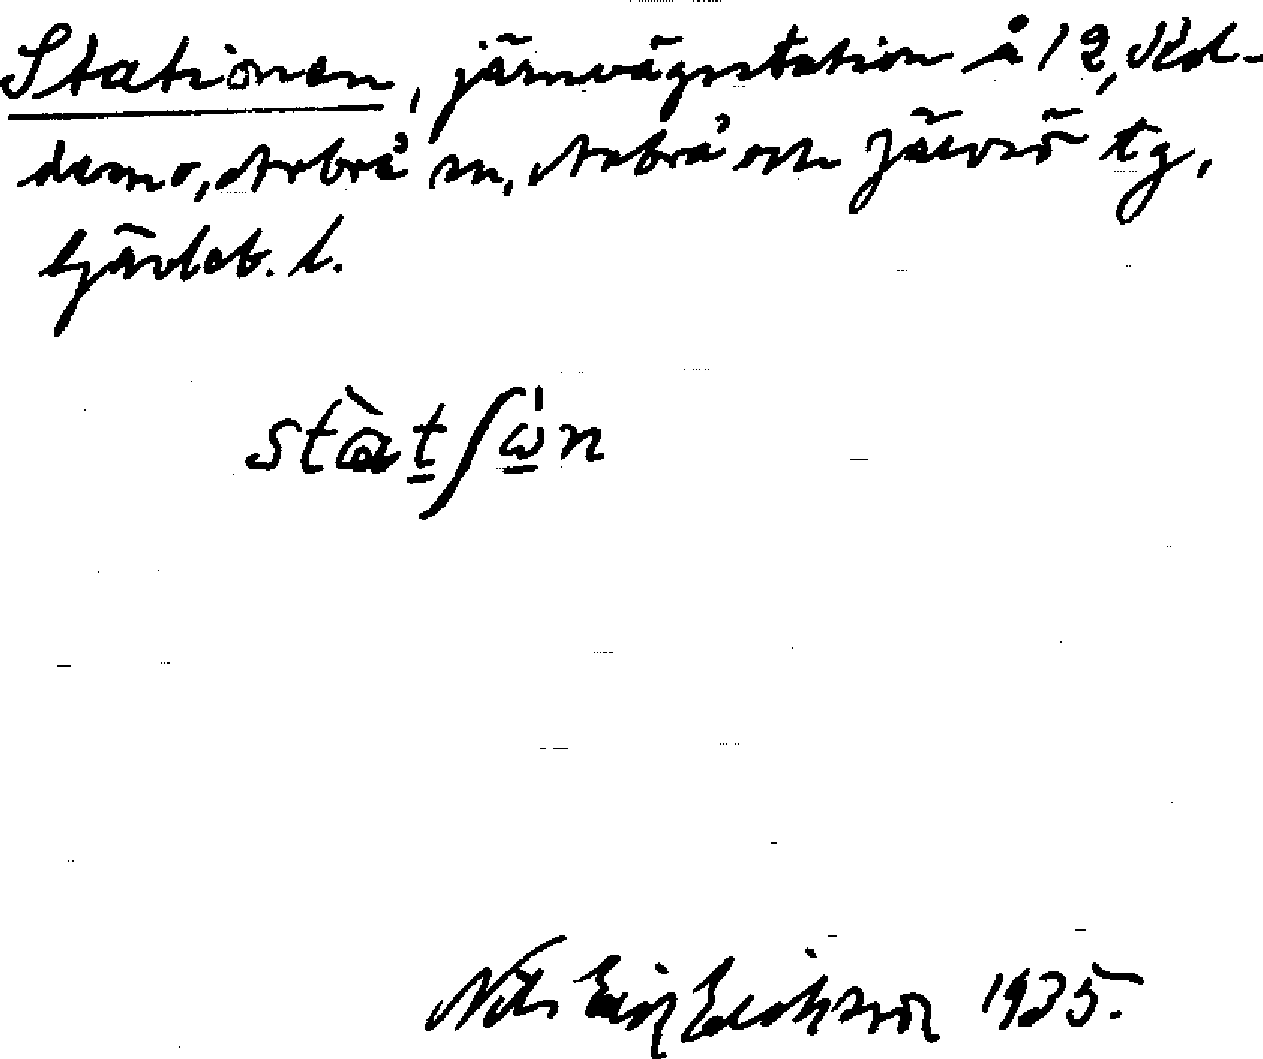 Stationen, järnvägsstation å 12, Kol-
demo, Arbrå sn, Arbrå och Järvsö tg,
Gävleb. l.
stàt̲ʃω̲̍n
Nils Erik Eriksson 1935.